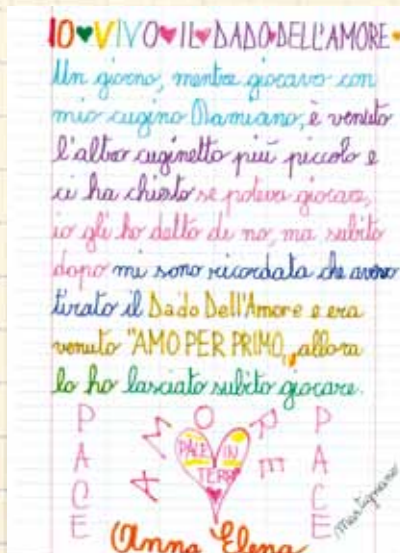 IO♥VIVO♥IL♥DADO♥DELL'AMORE♥
Un giorno, mentre giocavo con
mio cugino Damiano, è venuto
l'altro cuginetto più piccolo e
ci ha chiesto se poteva giocare,
io gli ho detto di no, ma subito
dopo mi sono ricordata che avevo
tirato il Dado Dell'Amore e era
venuto "AMO PER PRIMO„ allora
lo ho lasciato subito giocare.
PACE
AMORE
PACE IN
TERRA
PACE
Anna Elena
Martignano